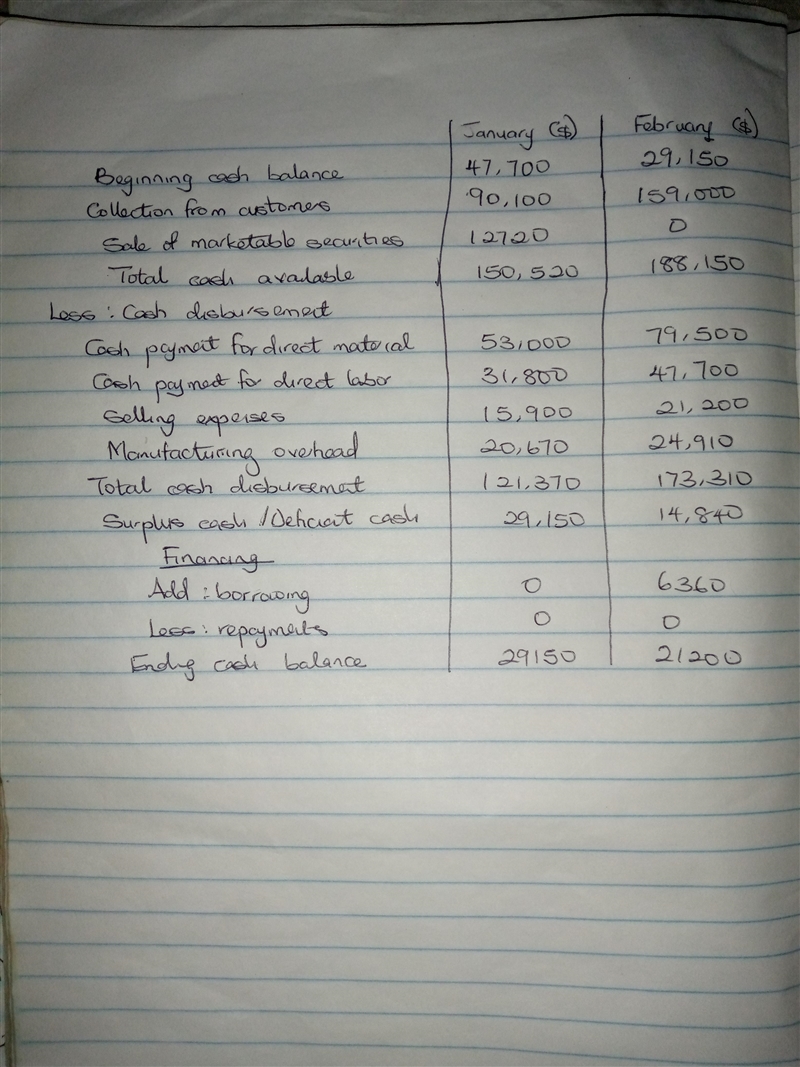 January ($) February ($)
Beginning cash balance 47,700 29,150
Collection from customers 90,100 159,000
Sale of marketable securities 12720 0
Total cash available 150,520 188,150
Less : Cash disbursement
Cash payment for direct material 53,000 79,500
Cash payment for direct labor 31,800 47,700
Selling expenses 15,900 21,200
Manufacturing overhead 20,670 24,910
Total cash disbursement 121,370 173,310
Surplus cash /Deficient cash 29,150 14,840
Financing
Add : borrowing 0 6360
Less : repayments 0 0
Ending cash balance 29150 21200